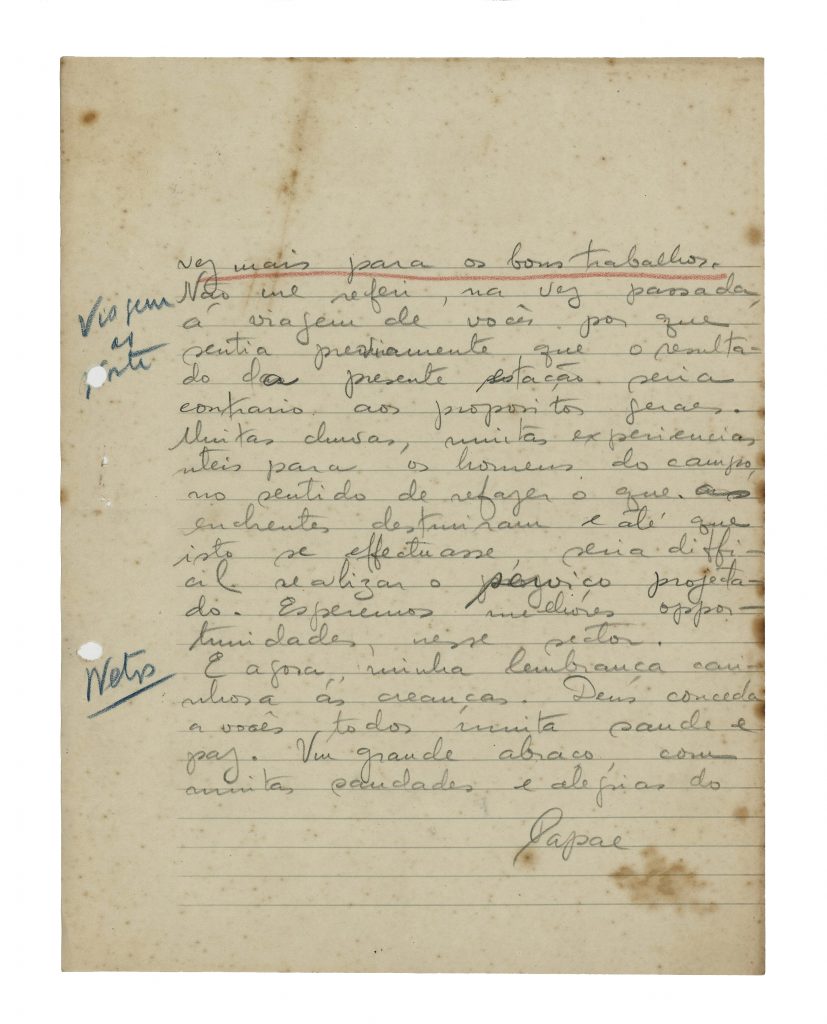 vez mais para os bons trabalhos.
Não me referi, na vez passada,
á viagem de vocês por que
sentia previamente que o resulta-
do da presente estação seria
contrario aos propositos geraes.
Muitas chuvas, muitas experiencias
uteis para os homens do campo,
no sentido de refazer o que as
enchentes destruiram e até que
isto se effectuasse, seria diffi-
cil realizar o serviço projecta-
do. Esperemos melhóres oppor-
tunidades, nesse sector.
E agora, minha lembrança cari-
nhosa ás creanças. Deus conceda
a vocês todos muita saude e
paz. Um grande abraço, com
muitas saudades e alegrias do
Papae
Viagem
Norte
Netos